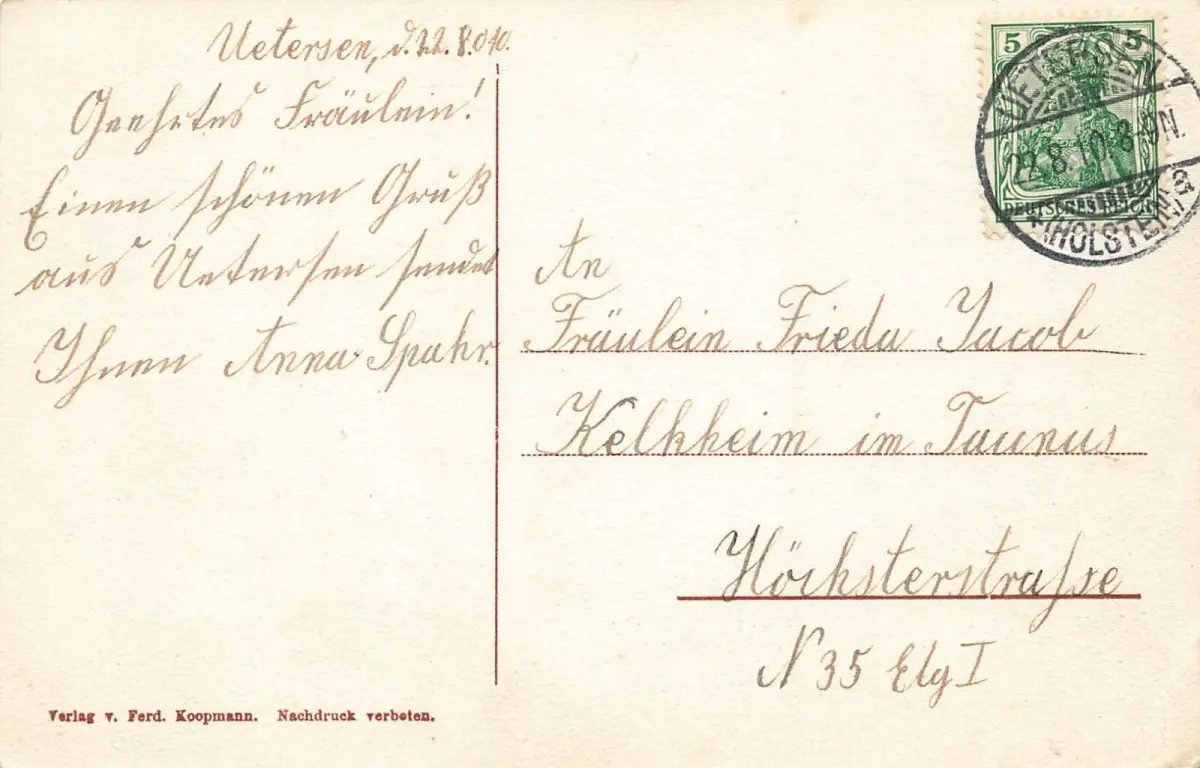 Uetersen, d. 22. 8. 010.
Geehrtes Fräulein!
Einen schönen Gruß
aus Uetersen sendet
Ihnen Anna Spahr.
Verlag v. Ferd. Koopmann. Nachdruck verboten.
5 5
DEUTSCHES REICH
UETERSEN
22.8.10.8-9N.
(HOLSTEIN)
An
Fräulein Frieda Jacob
Kelkheim im Taunus
Höchsterstraße
N 35 Etg I